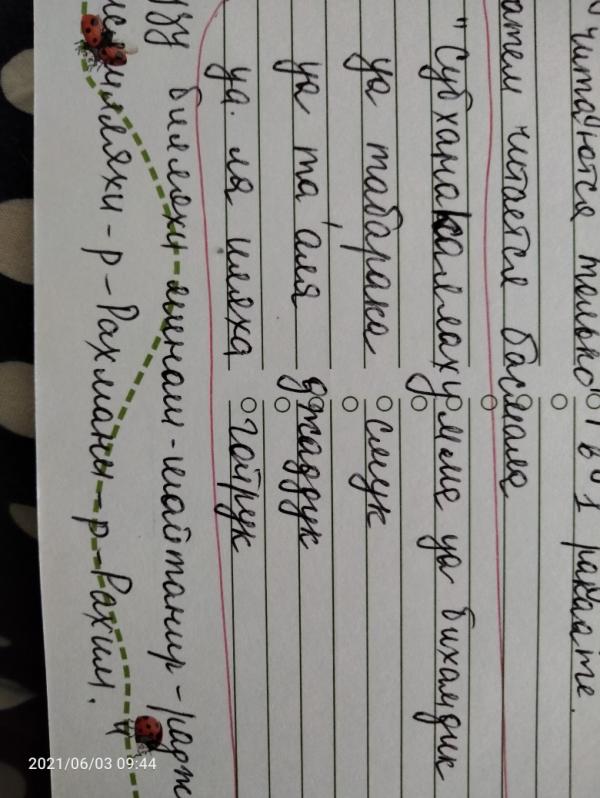 читаются только 1 в 1 ракаате.
атем читается басмала
"Субханакаллахумма уа бихамдик
уа табарака смук
уа та'аля джаддук
уа ля иляха гайрук
биллахи-минаш-шайтанир-радж
милляхи-р-Рахмани-р-Рахим.
2021/06/03 09:44